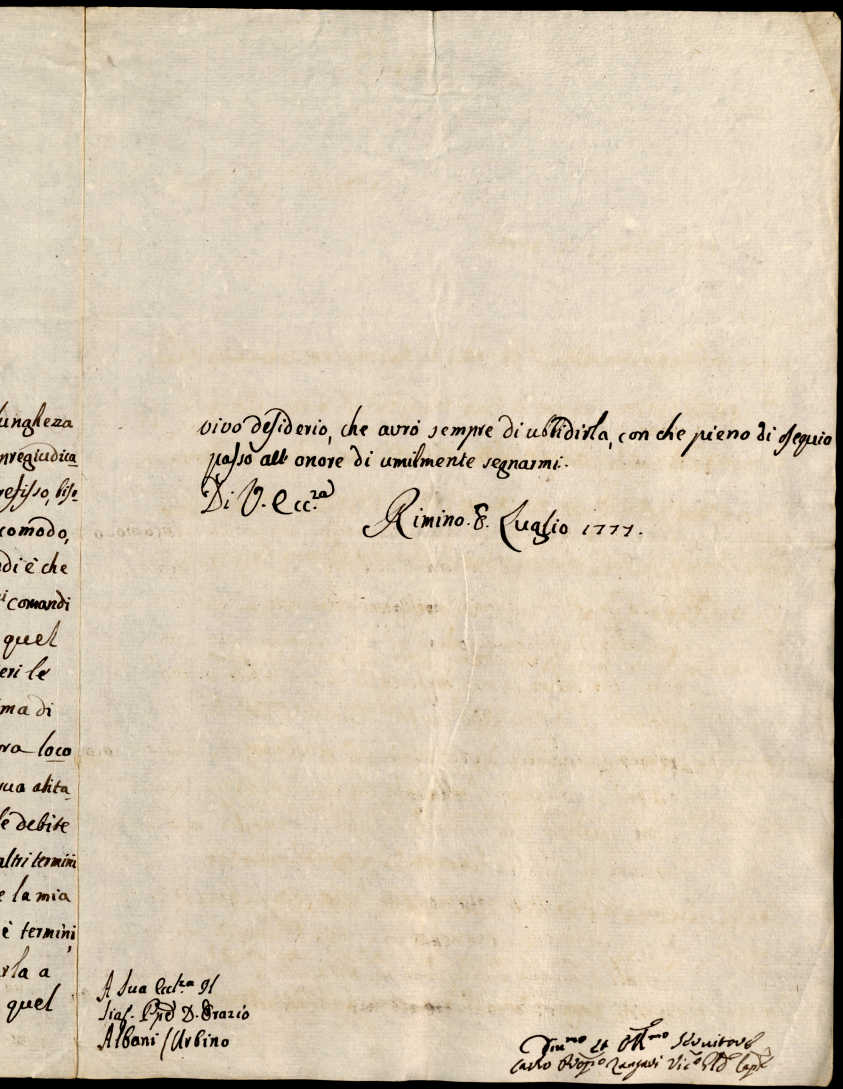 lungheza
nregiudica
efisso, biso
comodo,
di è che
i comandi
quel
eri le
ma di
ra loco
sua abita
le debite
altri termini
e la mia
è termini,
rla a
quel
vivo desiderio, che avró sempre di ubbidirla, con che pieno di osequio
passo all onore di umilmente segnarmi.
Di V. Ecc.za
Rimino. 8. Luglio 1777.
A Sua Ecclza Il
Sigr. Ppe D. Orazio
Albani / Urbino
Servitore
Carlo